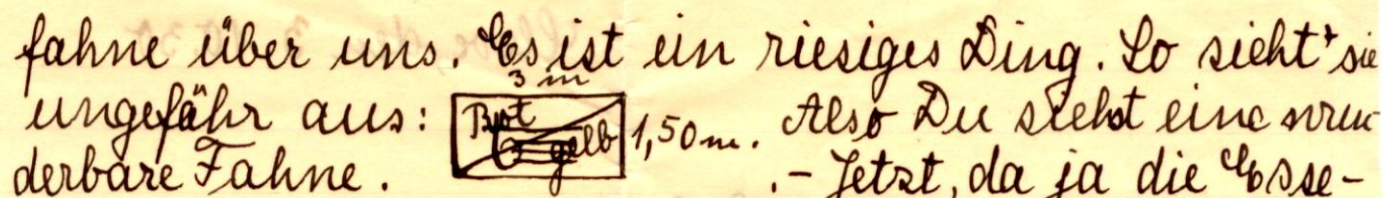 fahne über uns. Es ist ein riesiges Ding. So sieht sie
3 m
ungefähr aus: Rot gelb 1,50 m. Also Du siehst eine wun-
derbare Fahne. .- Jetzt, da ja die Esse-